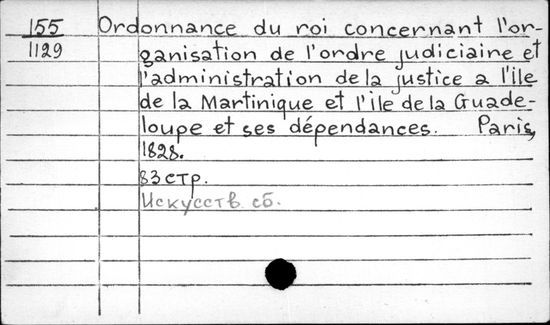 155 Ordonnance du roi concernant l'or-
1129 ganisation de l'ordre judiciaire et
l'administration de la justice a l'ile
de la Martinique et l'ile de la Guade-
loupe et ses dépendances. Paris,
1828.
83 стр.
Искусств. сб.